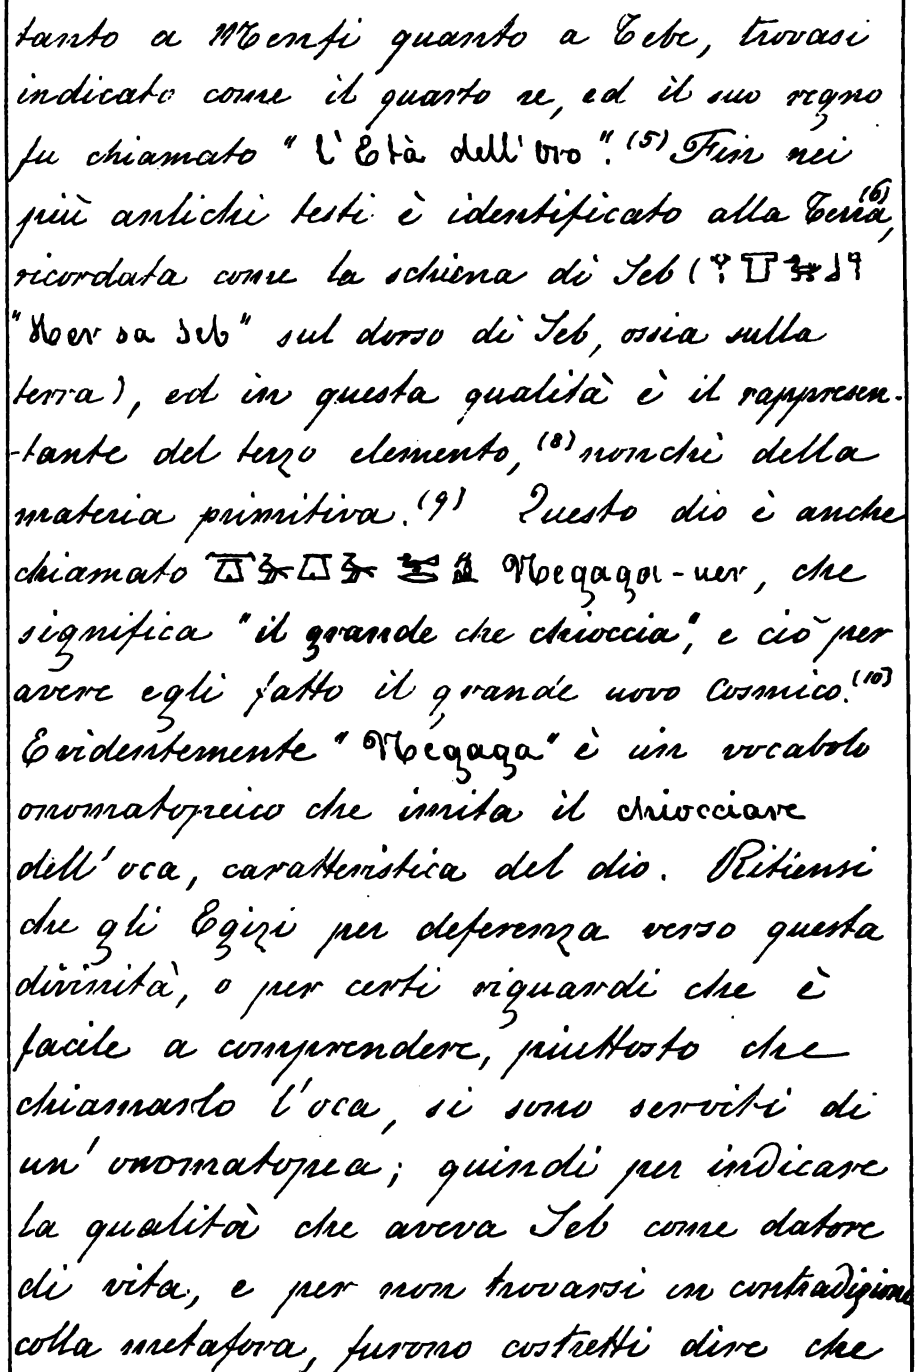 tanto a Menfi quanto a Tebe, trovasi
indicato come il quarto re, ed il suo regno
fu chiamato "l'Età dell'oro".(5) Fin nei
più antichi testi è identificato alla Terra,(6)
ricordata come la schiena di Seb (
"Her sa Seb" sul dorso di Seb, ossia sulla
terra), ed in questa qualità è il rappresen-
-tante del terzo elemento,(8) nonchè della
materia primitiva.(9) Questo dio è anche
chiamato Negaga-uer, che
significa "il grande che chioccia", e ciò per
avere egli fatto il grande uovo Cosmico.(10)
Evidentemente "Negaga" è un vocabolo
onomatopeico che imita il chiocciare
dell'oca, caratteristica del dio. Ritiensi
che gli Egizi per deferenza verso questa
divinità, o per certi riguardi che è
facile a comprendere, piuttosto che
chiamarlo l'oca, si sono serviti di
un' onomatopea; quindi per indicare
la qualità che aveva Seb come datore
di vita, e per non trovarsi in contradizione
colla metafora, furono costretti dire che